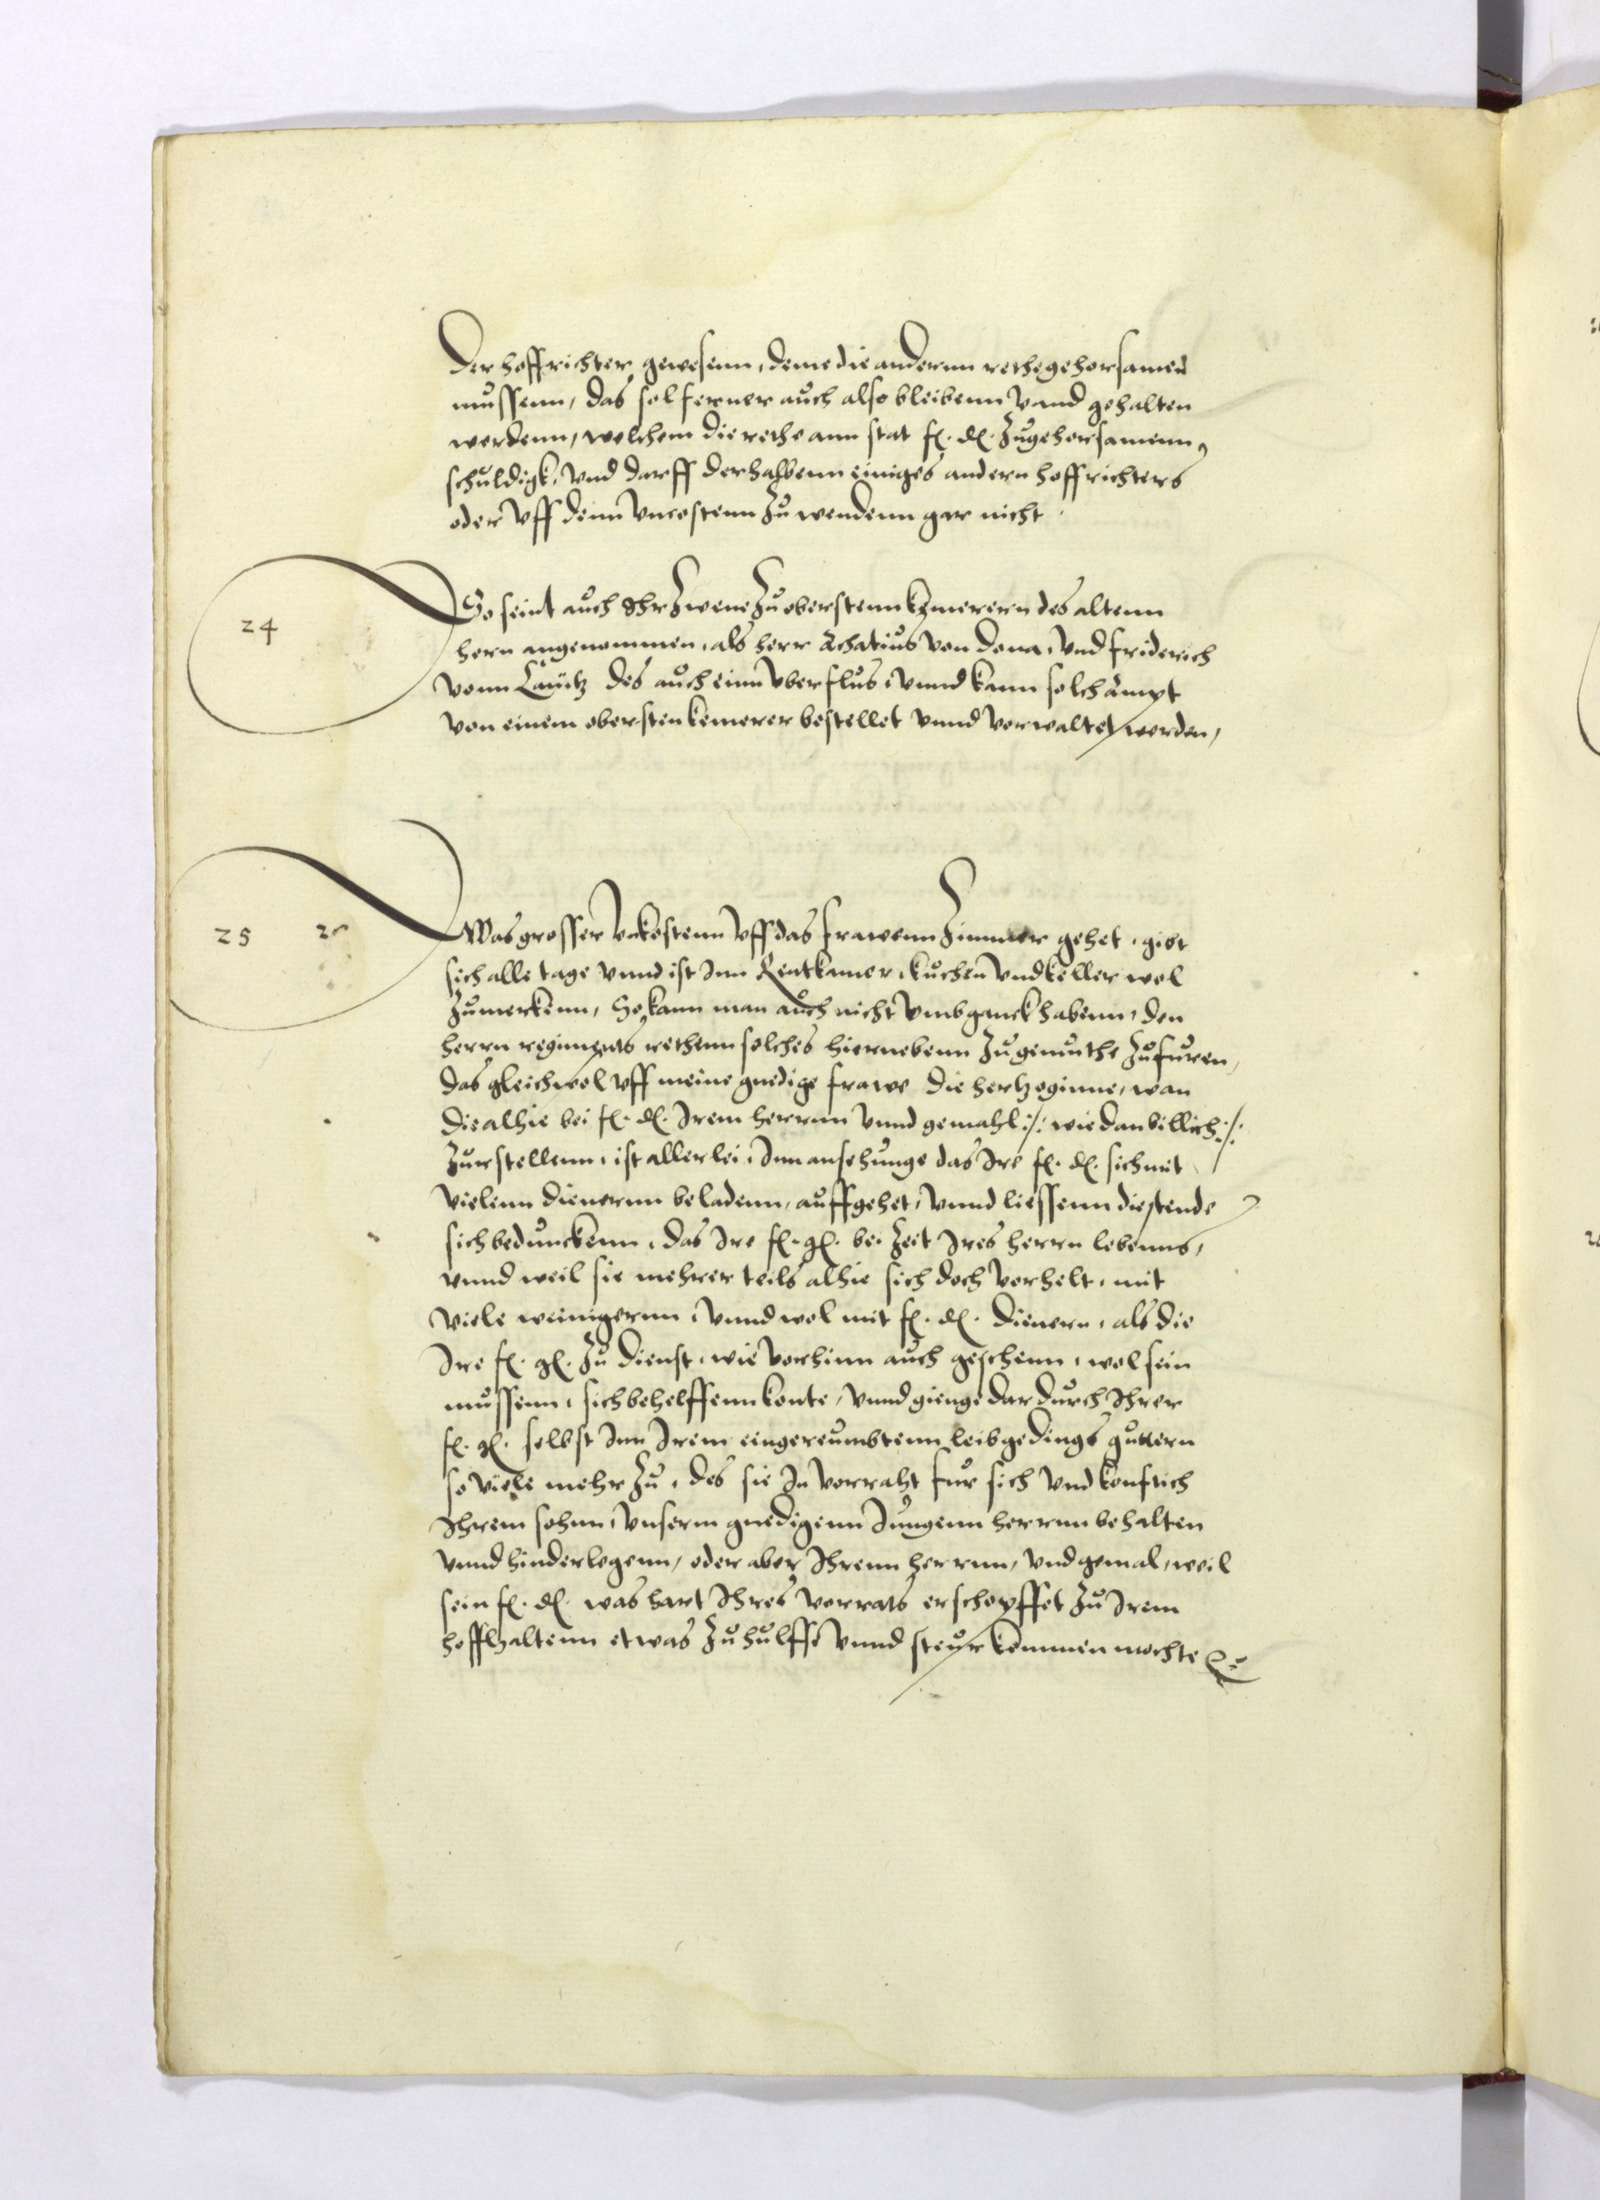 Der hoffrichter gewesenn, deme die anderun rethe gehorsamen
mussenn, das sol ferner auch also bleibenn vnnd gehalten
werdenn, welchem die rethe ann stat f. d. zugehorsamenn
schuldigk, vnd darff derhalbenn einiges andern hoffrichters
oder vff denn vncostenn zu wendenn gar nicht
24
So seint auch Ihr zwene zu oberstenn kemerern des altenn
hern angenommen, als herr Achatius von Dona, vnd friderich
vonn Cauitz des auch einn vberflus, vnnd kann solch ampt
von einem obersten kemerer bestellet vnnd verwaltet werden,
25
Was grosser vnkostenn vff das frawenn Zimmer gehet, gibt
sich alle tage vnnd ist Inn Rentkamer, kuchen vnd keller wol
zumerkenn, So kann man auch nicht vmbganck habenn, den
herrn regiments rethenn solches hiernebenn zugemuthe zufuren,
das gleichwol vff meine gnedige frawe die hertzoginne, wan
die alhie bei f. d. Irem herrnn vnnd gemahl :/: wie dan billich :/:
zur stellenn, ist allerlei, Inn ansehunge das Ire f. d. sich mit
vielenn dienernn beladenn, auffgehet, vnnd liessenn die stende
sich beduncken, das Ire f. g. bei zeit Ires herrn lebenns,
vnnd weil sie mehrer teils alhie sich doch verhelt, mit
viele weinigernn, vnnd wol mit f. d. dienern, als die
Ire f. g. zu dienst, wie vorhinn auch geschenn, wol sein
mussenn, sich behelffenn konte, vnnd gienge dardurch Ihrer
f. g. selbst Inn Irem eingereumbtenn leibgedings guttern
so viele mehr zu, des sie In vorraht fur sich vnd konftich
Ihrem sohnn, vnserm gnedigenn Jungenn herrnn behalten
vnnd hinderlegenn, oder aber Ihrenn herrnn, vnd gemal, weil
sein f. d. was hart Ihres vorrats erschopffet zu Irem
hoffhaltenn etwas zu hulffe vnnd steur kommen mochte